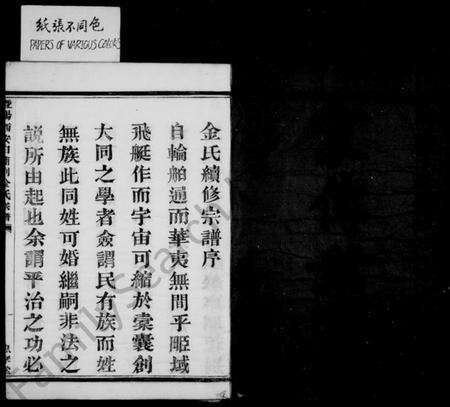 紙張不同色
PAPERS OF VARIOUS COLORS
金氏續修宗譜序
自輪舶通而華夷無間乎畛域
飛艇作而宇宙可縮於橐囊創
大同之學者僉謂民有族而姓
無族此同姓可婚繼嗣非法之
說所由起也余謂平治之功必
FamilySearch